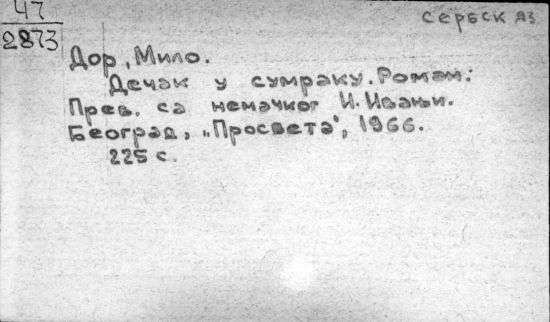 47
2873
сербск яз
Дор, Мило.
Дечак у сумраку. Роман.
Прев. са немачког И. Ивањи.
Београд, „Просвета", 1966.
225 с.